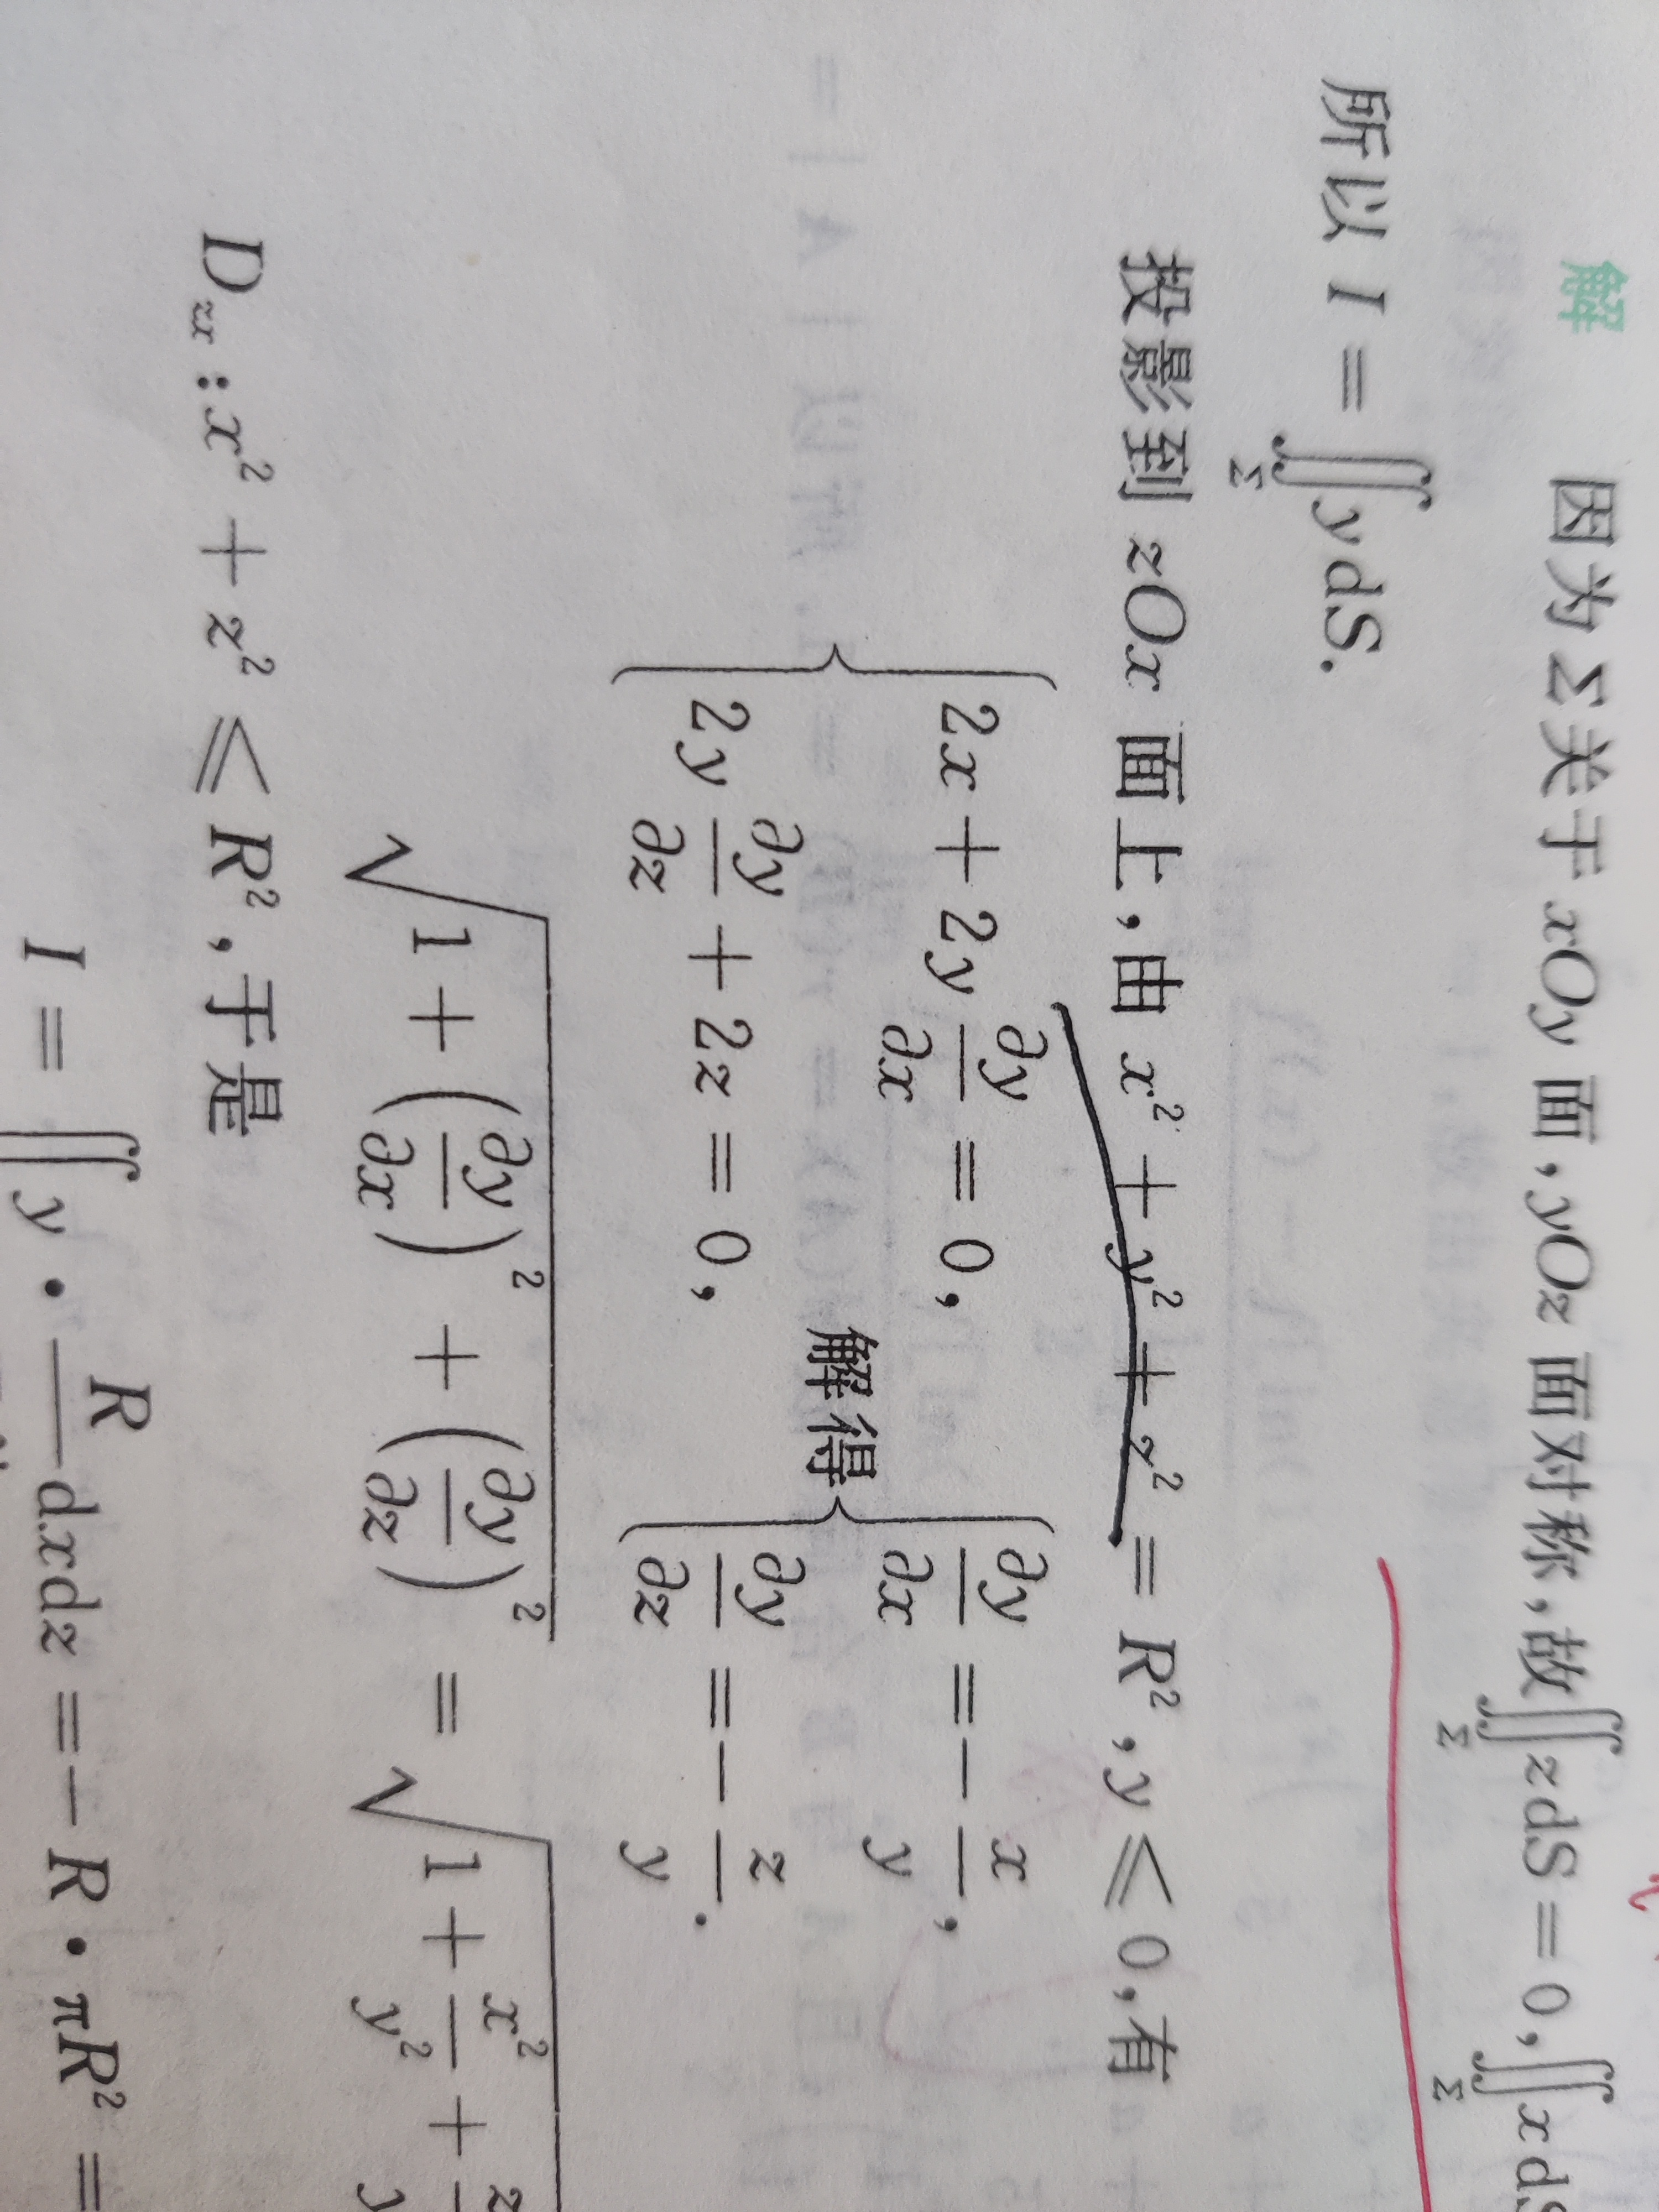 解 因为 Σ 关于 xOy 面,yOz 面对称,故∬_Σ z dS = 0,∬_Σ x dS
所以 I = ∬_Σ y dS.
投影到 zOx 面上,由 x² + y² + z² = R²,y ⩽ 0,有
{ 2x + 2y ∂y/∂x = 0, 2y ∂y/∂z + 2z = 0, 解得 { ∂y/∂x = − x/y, ∂y/∂z = − z/y.
√(1 + (∂y/∂x)² + (∂y/∂z)²) = √(1 + x²/y² + z
D_zx : x² + z² ⩽ R²,于是
I = ∬ y · R dxdz = − R · πR² =